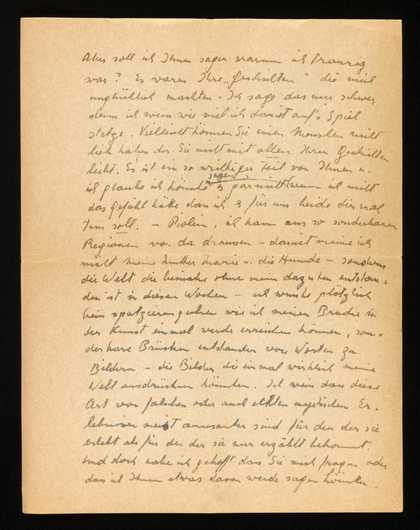 Aber soll ich Ihnen sagen warum ich traurig
war? Es waren Ihre „Geschichten" die mich
unglücklich machten. Ich sage das nur schwer
denn ich weiss wie viel ich damit auf's Spiel
setze. Vielleicht können Sie einen Menschen nicht
lieb haben der Sie nicht mit allen Ihren Geschichten
liebt. Es ist ein so wichtiger Teil von Ihnen u.
ich glaube ich könnte es sagen wenn ich nicht
das Gefühl hätte dass ich es für uns beide
tun soll. – ich kam aus so sonderbaren
Regionen von da draussen – damit meine ich
nicht meine Mutter Marie u. die Hunde – sondern
die Welt die beinahe ohne mein dazutun entstan-
den ist in diesen Wochen – ich wusste plötzlich
beim spatzierengehen wie ich meinen Bruder in
der Kunst einmal werde erreichen können, son-
derbare Brücken entstanden von Worten zu
Bildern – die Bilder die einmal wirklich meine
Welt ausdrücken könnten. Ich weiss dass diese
Art von falschen oder auch echten mystischen Er-
lebnissen meist amusanter sind für den der sie
erlebt als für den der sie nur erzählt bekommt.
Und doch habe ich gehofft dass Sie mich fragen oder
dass ich Ihnen etwas davon werde sagen können.